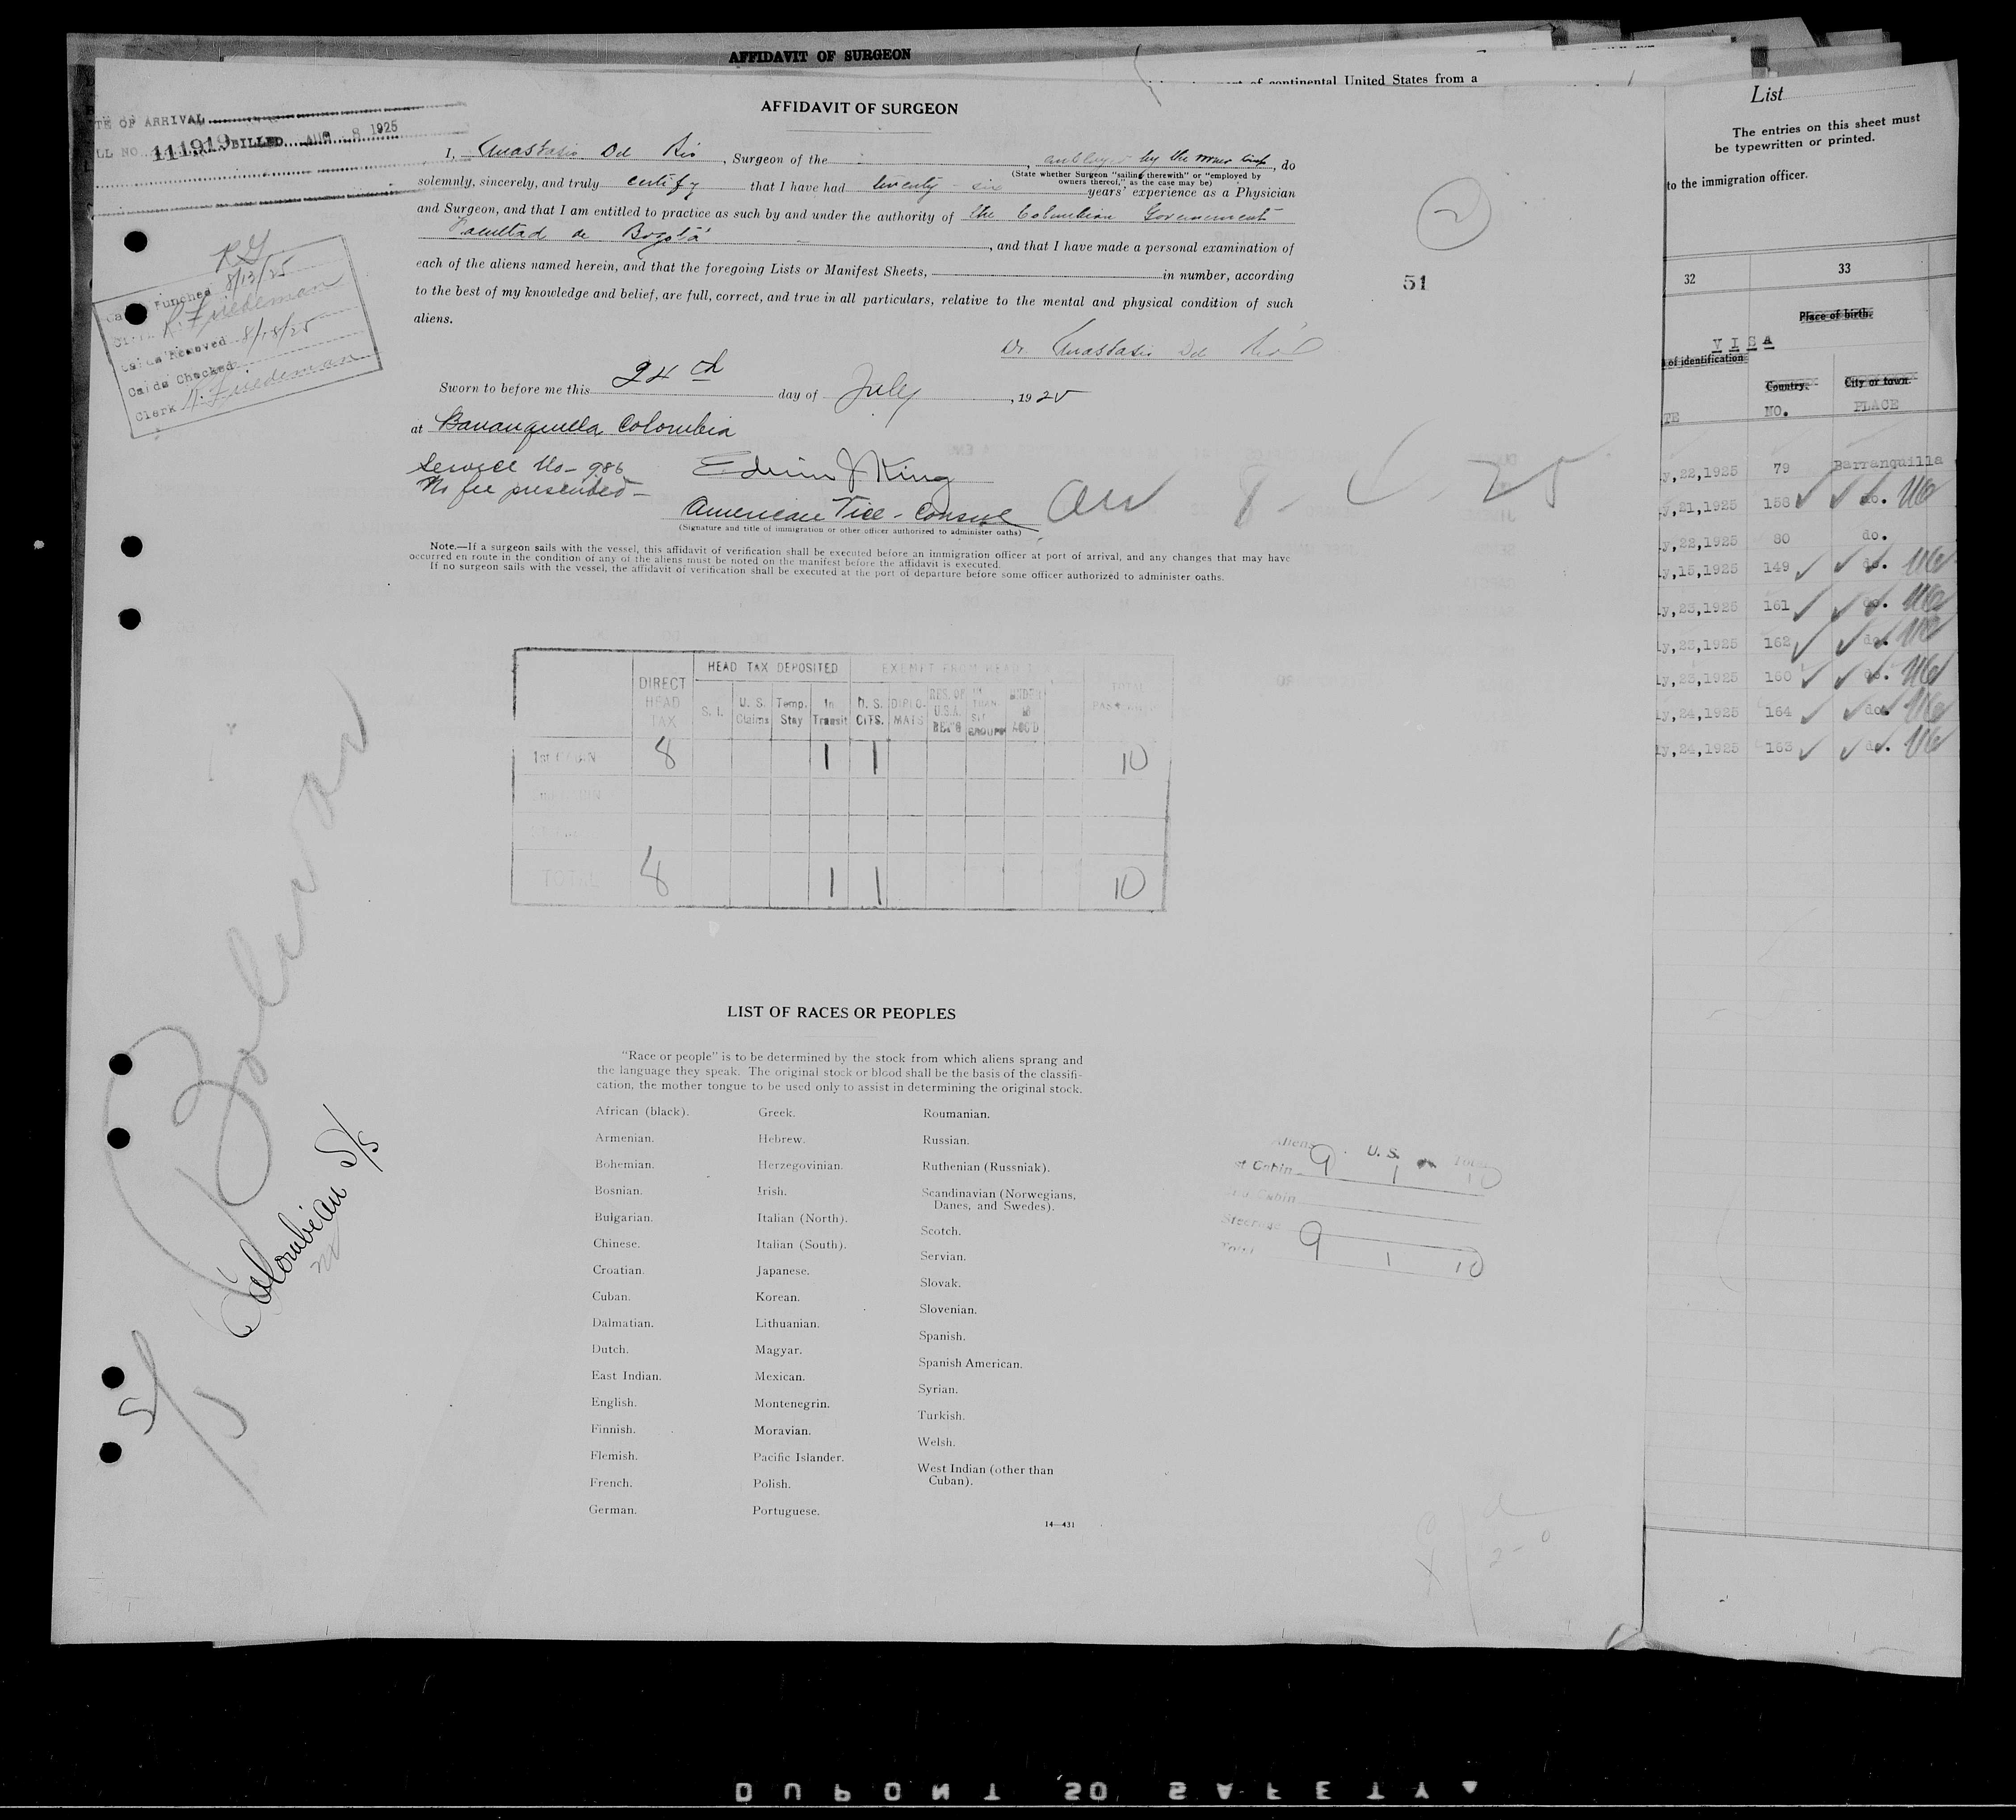 AFFIDAVIT OF SURGEON
of continental United States from a
List
The entries on this sheet must
be typewritten or printed.
to the immigration officer.
TE OF ARRIVAL
LL NO. 111919 BILLED AUG - 8 1925
AFFIDAVIT OF SURGEON
I, Anastasio Del Rio, Surgeon of the , by the , do
(State whether Surgeon "sailing therewith" or "employed by
owners thereof," as the case may be)
solemnly, sincerely, and truly certify that I have had twenty-six years' experience as a Physician
and Surgeon, and that I am entitled to practice as such by and under the authority of the Colombian Government
Facultad de Bogotá , and that I have made a personal examination of
each of the aliens named herein, and that the foregoing Lists or Manifest Sheets, in number, according
to the best of my knowledge and belief, are full, correct, and true in all particulars, relative to the mental and physical condition of such
aliens.
Dr. Anastasio Del Rio
Sworn to before me this 24th day of July, 1925
at Barranquilla Colombia
Service No- 986
No fee prescribed-
Edwin J King
American Vice-Consul
(Signature and title of immigration or other officer authorized to administer oaths)
2
51
Punched 8/13/25
R. Friedeman
Cards Removed 8/18/25
Cards Checked
Clerk R. Friedeman
Note.—If a surgeon sails with the vessel, this affidavit of verification shall be executed before an immigration officer at port of arrival, and any changes that may have
occurred en route in the condition of any of the aliens must be noted on the manifest before the affidavit is executed.
If no surgeon sails with the vessel, the affidavit of verification shall be executed at the port of departure before some officer authorized to administer oaths.
DIRECT HEAD TAX
HEAD TAX DEPOSITED
EXEMPT FROM HEAD TAX
S. I.
U. S. Claims
Temp. Stay
In Transit
U. S. CITS.
DIPLO-MATS
RES. OF U.S.A.
TOTAL
1st CABIN 8 1 1 10
TOTAL 8 1 1 10
Bolivar
Colombian S/S
S/S
LIST OF RACES OR PEOPLES
"Race or people" is to be determined by the stock from which aliens sprang and
the language they speak. The original stock or blood shall be the basis of the classifi-
cation, the mother tongue to be used only to assist in determining the original stock.
African (black).
Armenian.
Bohemian.
Bosnian.
Bulgarian.
Chinese.
Croatian.
Cuban.
Dalmatian.
Dutch.
East Indian.
English.
Finnish.
Flemish.
French.
German.
Greek.
Hebrew.
Herzegovinian.
Irish.
Italian (North).
Italian (South).
Japanese.
Korean.
Lithuanian.
Magyar.
Mexican.
Montenegrin.
Moravian.
Pacific Islander.
Polish.
Portuguese.
Roumanian.
Russian.
Ruthenian (Russniak).
Scandinavian (Norwegians,
Danes, and Swedes).
Scotch.
Servian.
Slovak.
Slovenian.
Spanish.
Spanish American.
Syrian.
Turkish.
Welsh.
West Indian (other than
Cuban).
14—431
Aliens U. S. Total
st Cabin 9 1 10
Cabin
Steerage
Total 9 1 10
32
33
Place of birth.
VISA
of identification
Country.
City or town.
TE
NO.
PLACE
y,22,1925 79 Barranquilla
y,21,1925 158 do.
y,22,1925 80 do.
y,15,1925 149 do.
y,23,1925 161 do.
y,23,1925 162 do.
y,23,1925 160 do.
y,24,1925 164 do.
y,24,1925 163 do.
DUPONT SO SAFETY